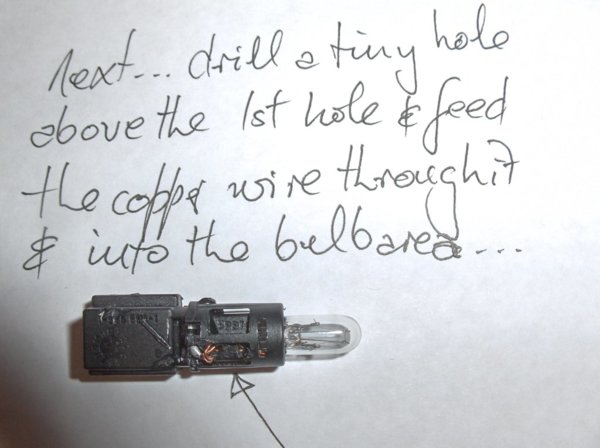 Next... drill a tiny hole
above the 1st hole & feed
the copper wire through it
& into the bulb area...